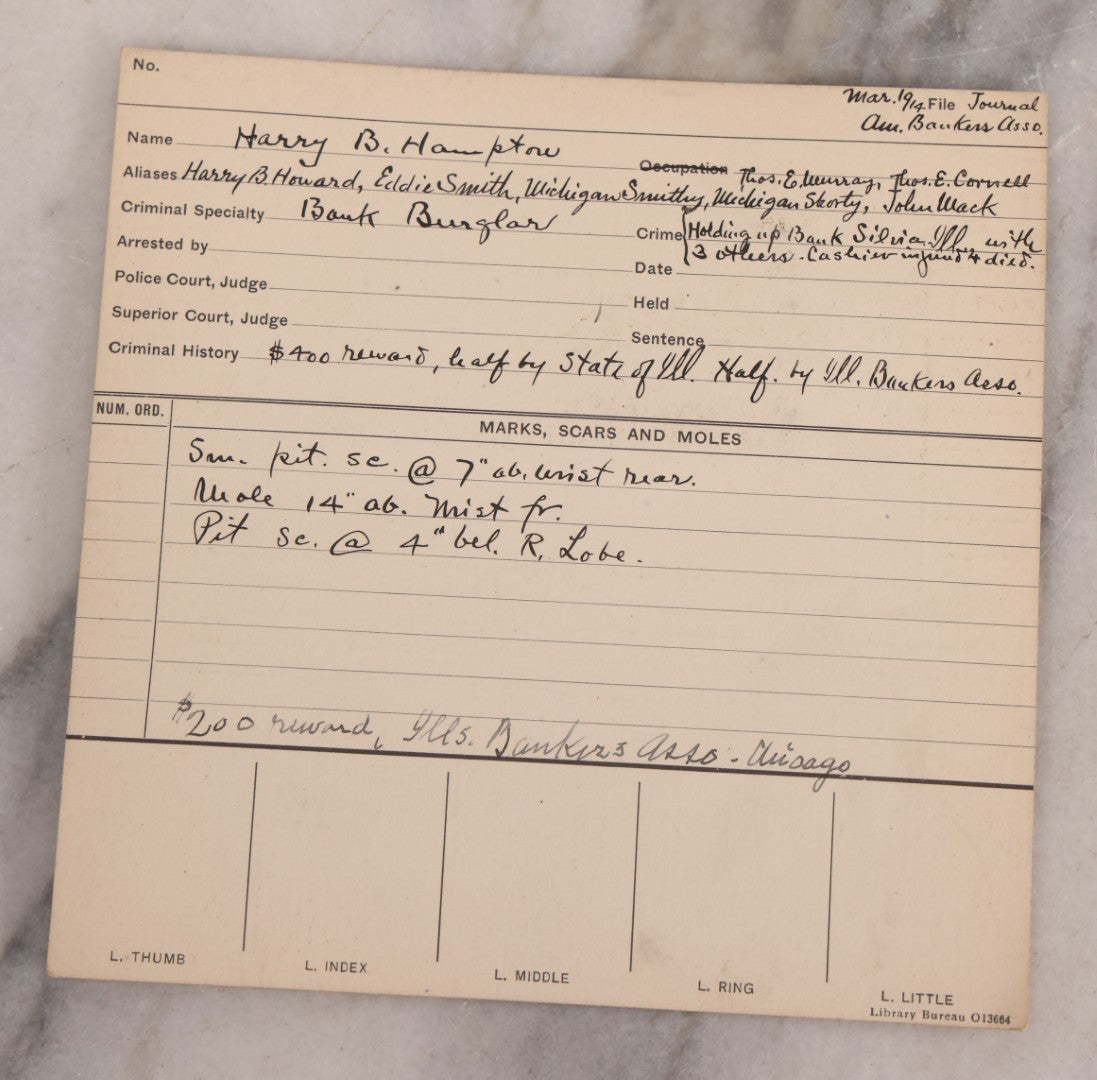 No.
Mar. 1914 File Journal
Am. Bankers Asso.
Name Harry B. Hampton
Occupation Thos. E. Murray, Thos. E. Cornell
Aliases Harry B. Howard, Eddie Smith, Michigan Smithy, Michigan Shorty, John Mack
Criminal Specialty Bank Burglar
Crime Holding up Bank Silvis, Ill., with
3 others. Cashier injured & died.
Arrested by
Date
Police Court, Judge
Held
Superior Court, Judge
Sentence
Criminal History $400 reward, half by State of Ill. Half. by Ill. Bankers Asso.
NUM. ORD.
MARKS, SCARS AND MOLES
Sm. pit. sc. @ 7" ab. wrist rear.
Mole 14" ab. Wrist fr.
Pit sc. @ 4" bel. R. Lobe.
$200 reward, Ills. Bankers Asso. Chicago
L. THUMB
L. INDEX
L. MIDDLE
L. RING
L. LITTLE
Library Bureau O13664